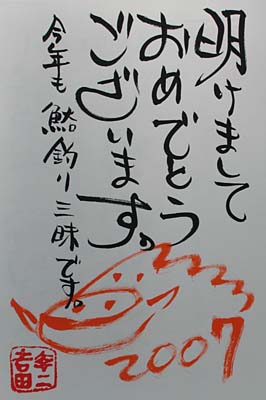 明けまして
おめでとう
ございます。
今年も 釣り三昧です。
2007
吉田
幸二